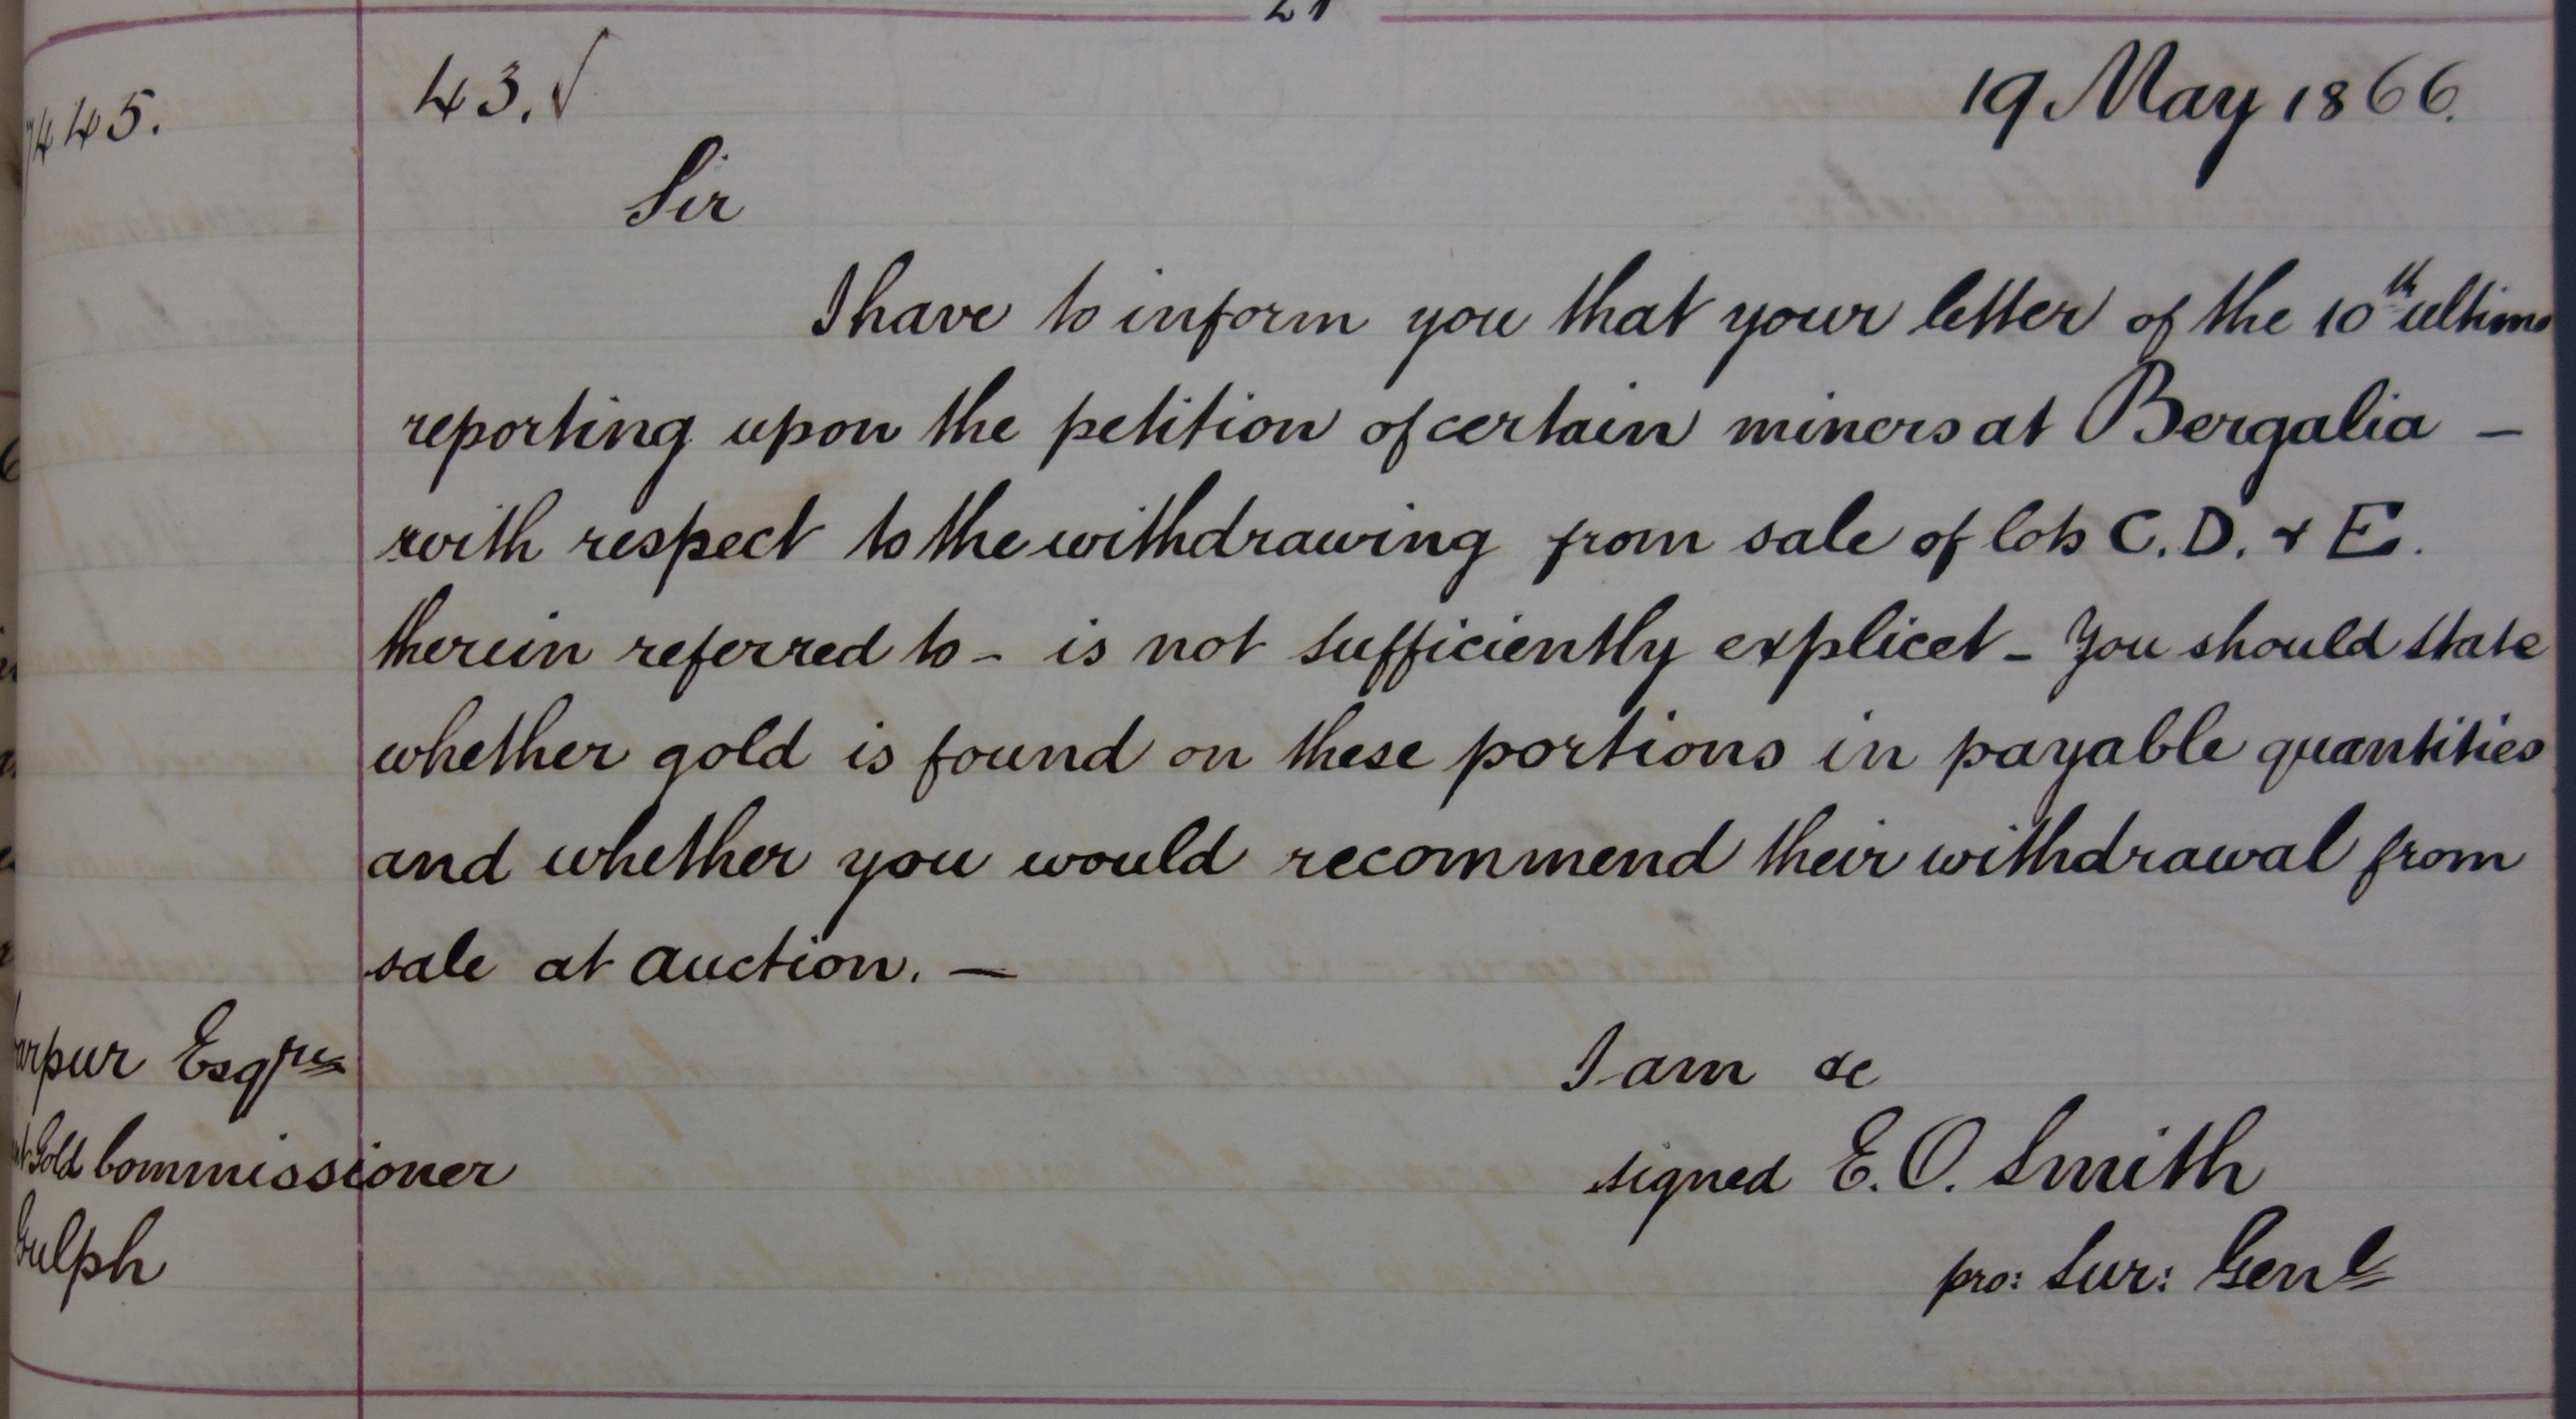 43. √ 19 May 1866.
445.
Sir
I have to inform you that your letter of the 10th ultimo
reporting upon the petition of certain miners at Bergalia –
with respect to the withdrawing from sale of lots C. D. & E.
therein referred to – is not sufficiently explicet – You should state
whether gold is found on these portions in payable quantities
and whether you would recommend their withdrawal from
sale at auction. –
arpur Esqre
I am &c
Gold Commissioner
signed E. O. Smith
Gulph
pro: Sur: Genl